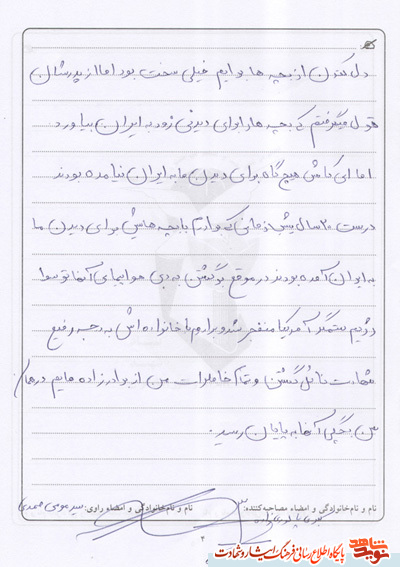 دل کندن از بچه ها برایم خیلی سخت بود اما از پدرشان
قول میگرفتم که بچه ها را برای دیدنی زود به ایران بیاورد
اما ای کاش هیچ گاه برای دیدن ما به ایران نیامده بودند
درست ۳۰ سال پیش زمانی که برادرم با بچه هایش برای دیدن ما
به ایران آمده بودند در موقع برگشتن به دبی هواپیمای آنها توسط
رژیم ستمگر آمریکا منفجر شد و برادرم با خانواده اش به درجه رفیع
شهادت نائل گشتن و تمام خاطرات من از برادرزاده هایم در همان
سن بچگی آنها به پایان رسید.
نام و نام خانوادگی و امضاء مصاحبه کننده:
نام و نام خانوادگی و امضاء راوی: سید موسی صمدی
۳
نوید شاهد
پایگاه اطلاع رسانی فرهنگ ایثار و شهادت